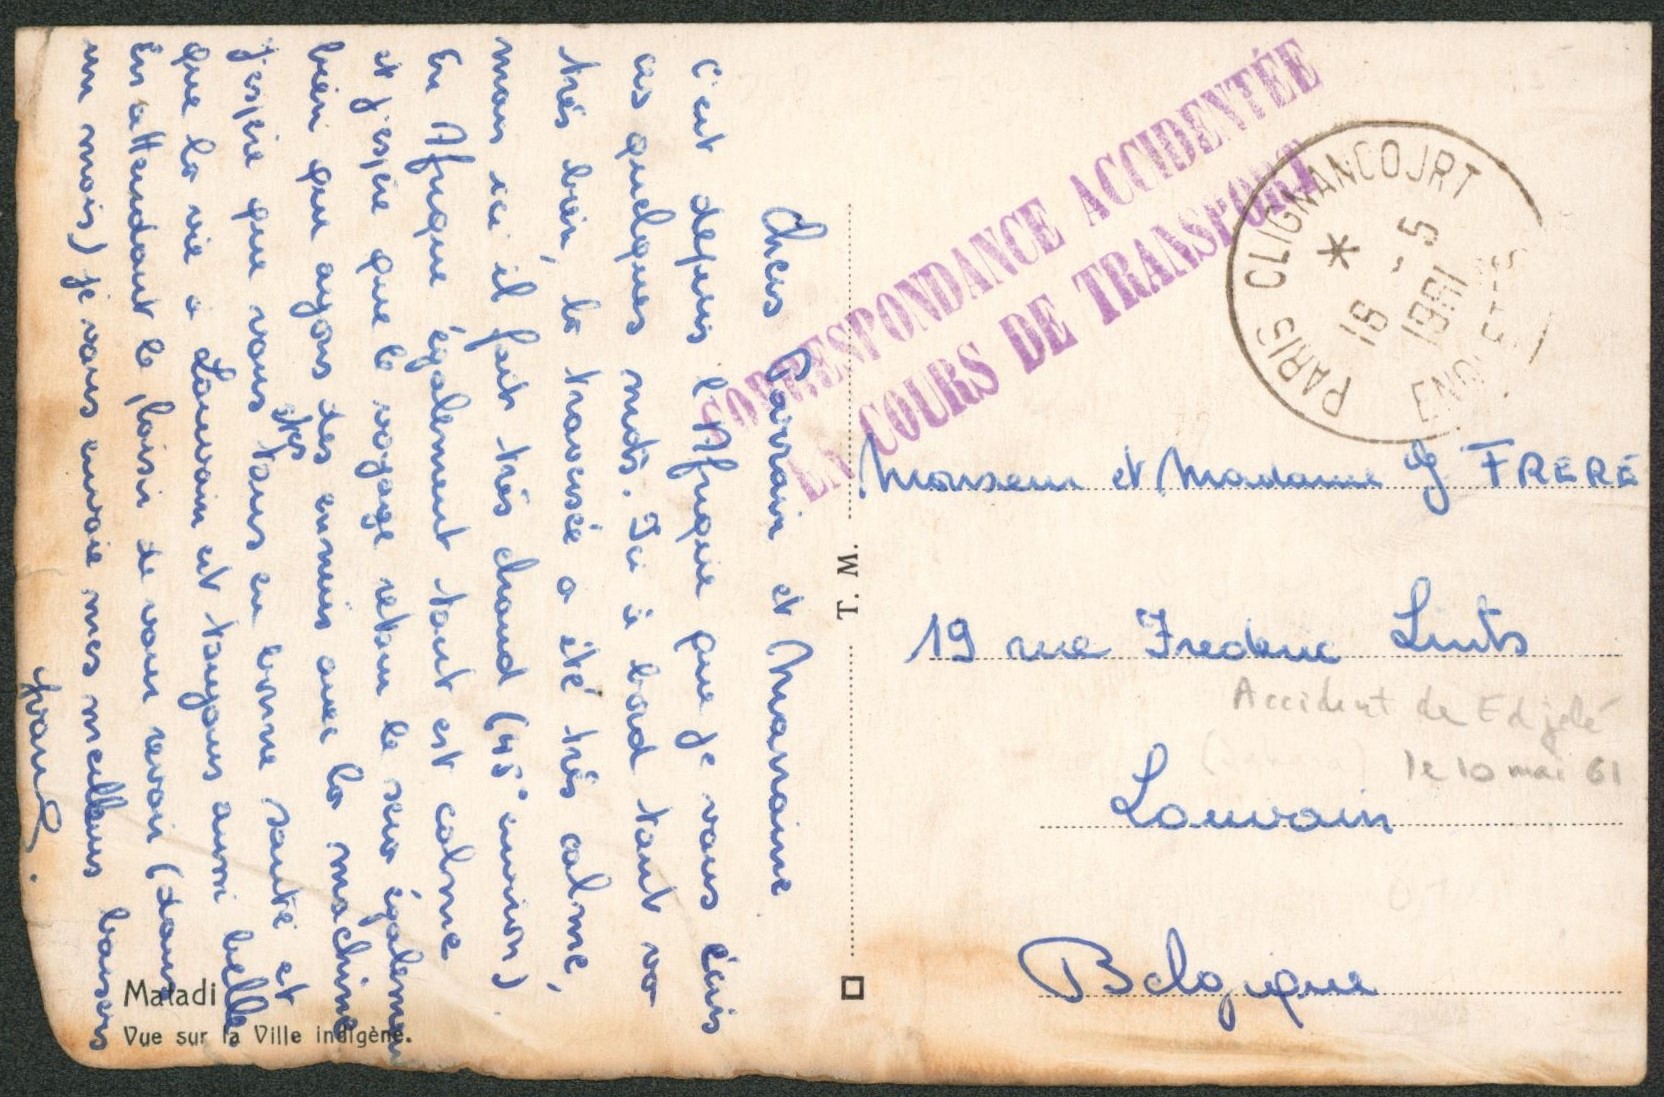 Chers Parrain et Marraine
C'est depuis l'Afrique que je vous écris
ces quelques mots. Ici à bord tout va
très bien, la traversée a été très calme,
mais ici il fait très chaud (45° environ).
En Afrique également tout est calme
et j'espère que le voyage retour le sera également
bien que ayons des ennuis avec la machine
J'espère que vous êtes tous en bonne santé et
que la vie à Louvain est toujours aussi belle
En attendant le plaisir de vous revoir (dans
un mois) je vous envoie mes meilleurs baisers
Matadi
Vue sur la Ville indigène.
T. W.
CORRESPONDANCE ACCIDENTÉE
EN COURS DE TRANSPORT
PARIS CLIGNANCOURT
18 -5
1961
Monsieur et Madame J FRERE
19 rue Frederic Lints
Accident de Edjelé
(Sahara) le 10 mai 61
Louvain
Belgique